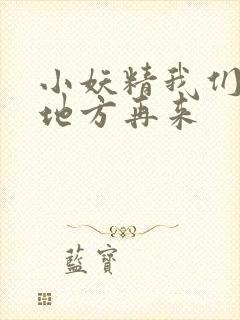 小妖精我们
地方再来
藍寶